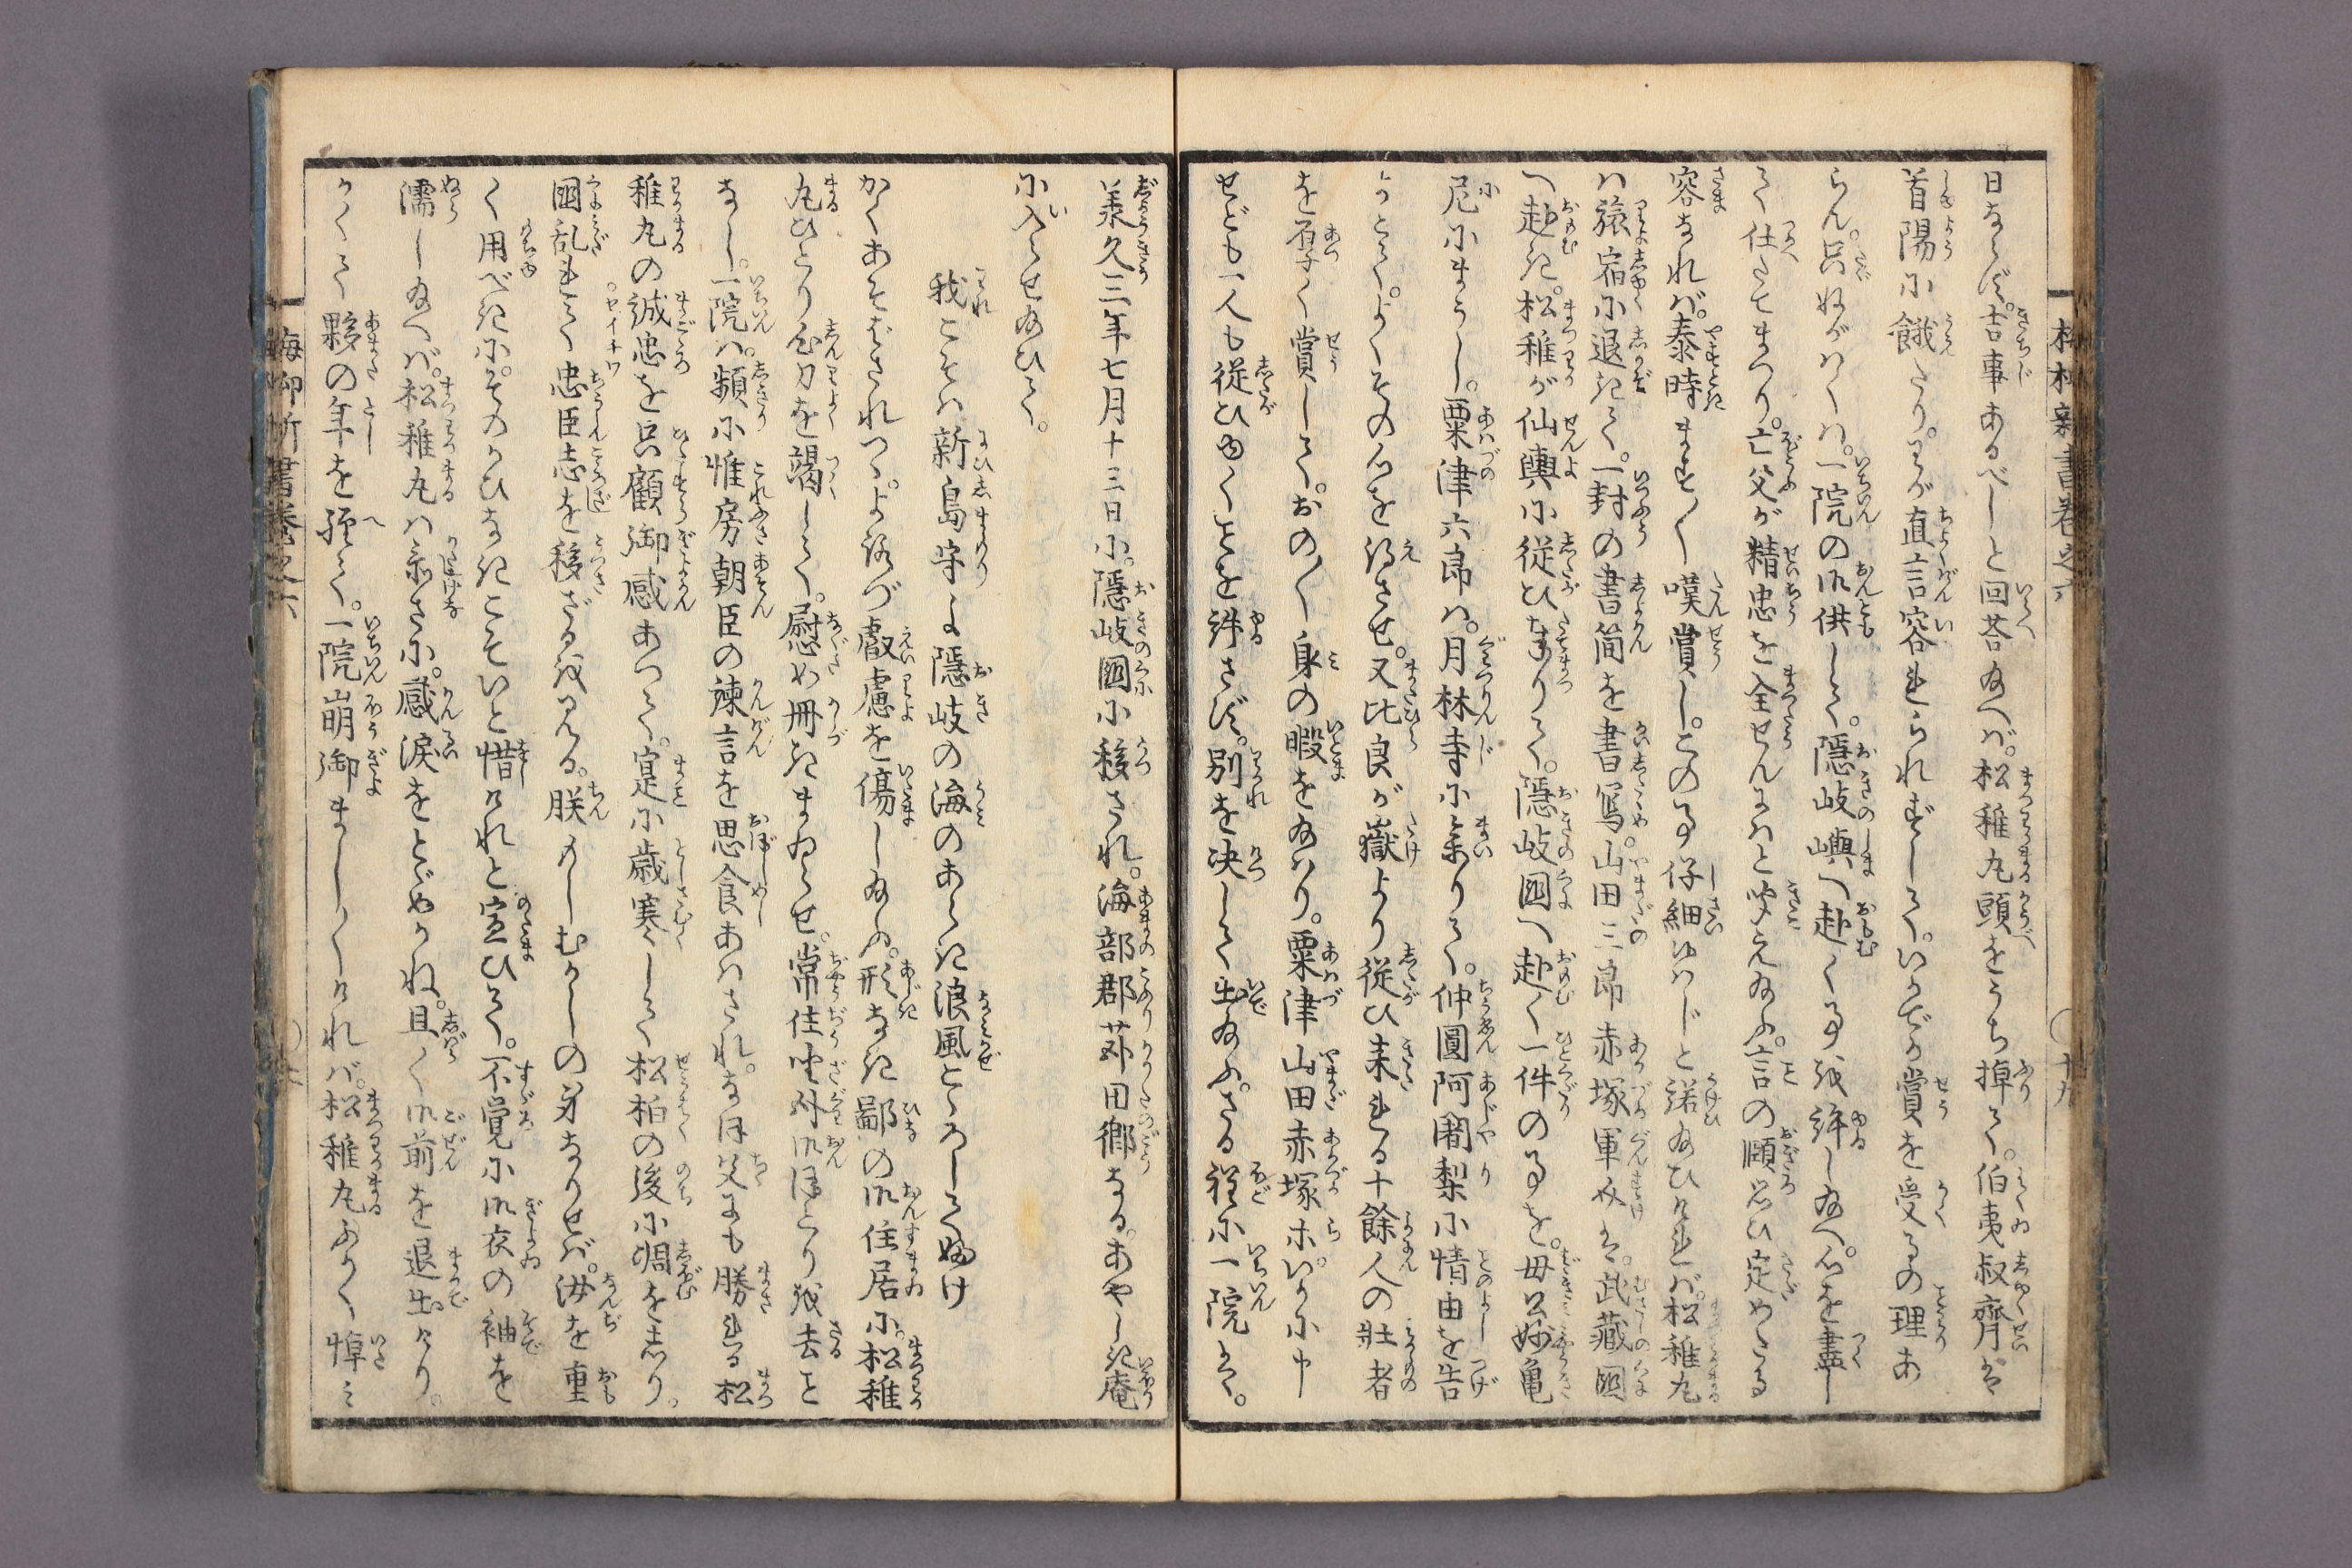 日ならず。吉事あるべしと回荅給へば。松稚丸頭をうち掉て。伯夷叔齊は
首陽に餓たり。わが直言容れられずして。いかでか賞を受るの理あ
らん。只ねがはくは。一院の御供して。隠岐嶼へ赴く事を許し給へ。心を盡し
て仕たてまつり。亡父が精忠を全せんにはと聞え給ふ。言の願ひ定めたる
容なれば。泰時ます〳〵嘆賞し。この事仔細はじと諾給ひければ。松稚丸
は旅宿に退きて。一封の書简を書寫。山田三郎赤塚軍介は。武藏國
へ赴き。松稚が仙輿に従ひまゐりて。隠岐國へ赴く一件の事を。母公妙亀
尼にまうし。粟津六郎は。月林寺に参りて。仲圓阿闍梨に情由を告
うして。よくその心を得させ。又比良が嶽より従ひ来れる十餘人の壮者
を厚く賞して。おの〳〵身の暇を給はり。粟津山田赤塚ホ。いかに申
せども一人も従ひゆくことを許さず。別を决して出給ふ。さる程に一院は。
羕久三年七月十三日に。隠岐國に移され。海部郡苅田郷なる。あやしき庵
に入らせ給ひて。
我こそは新島守よ隠岐の海のあらき浪風こゝろして吹け
かくあそばされつゝ。よろづ叡慮を傷し給ふ。形なき鄙の御住居に。松稚
丸ひとり心力を竭して。慰め冊きまゐらせ。常住坐臥御ほとり を去こと
なし。一院は。頻に惟房朝臣の諫言を思食あはされ。なほ父にも勝れる松
稚丸の誠忠を只顧御感あつて。寔に歳寒くして松柏の後に凋をしり。
國乱れて忠臣志を移ざるを見る。朕 むかしの身なりせば。汝を重
く用べきに。そのかひなきこそいと惜けれと宣ひて。不覚に御衣の袖を
濡し給へば。松稚丸は忝さに。感涙をとゞめかね。且く御前を退出けり。
かくて夥の年を經て。一院崩御ましましければ。松稚丸ふかく悼み